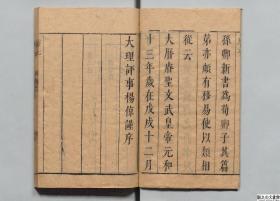 孫卿新書為荀卿子其篇
弟亦頗有移易使以類相
從云
大唐睿聖文武皇帝元和
十三年歲在戊戌十二月
大理評事楊倞謹序